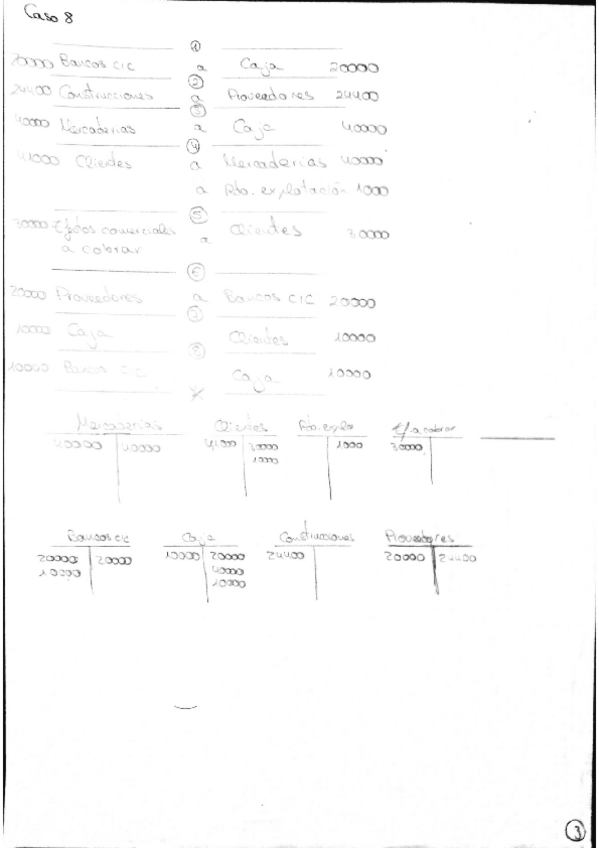 Caso 8
1
20000 Bancos c/c a Caja 20000
2
24400 Construcciones a Proveedores 24400
3
40000 Mercaderías a Caja 40000
4
41000 Clientes a Mercaderías 40000
a Rdo. explotación 1000
5
30000 Efectos comerciales a Clientes 30000
a cobrar
6
20000 Proveedores a Bancos c/c 20000
7
10000 Caja Clientes 10000
8
10000 Bancos c/c Caja 10000
Mercaderías Clientes Rdo. explo Ef a cobrar
40000 40000 41000 30000 1000 30000
Bancos c/c Caja Construcciones Proveedores
20000 20000 10000 20000 24400 20000 24400
10000 40000
10000
3